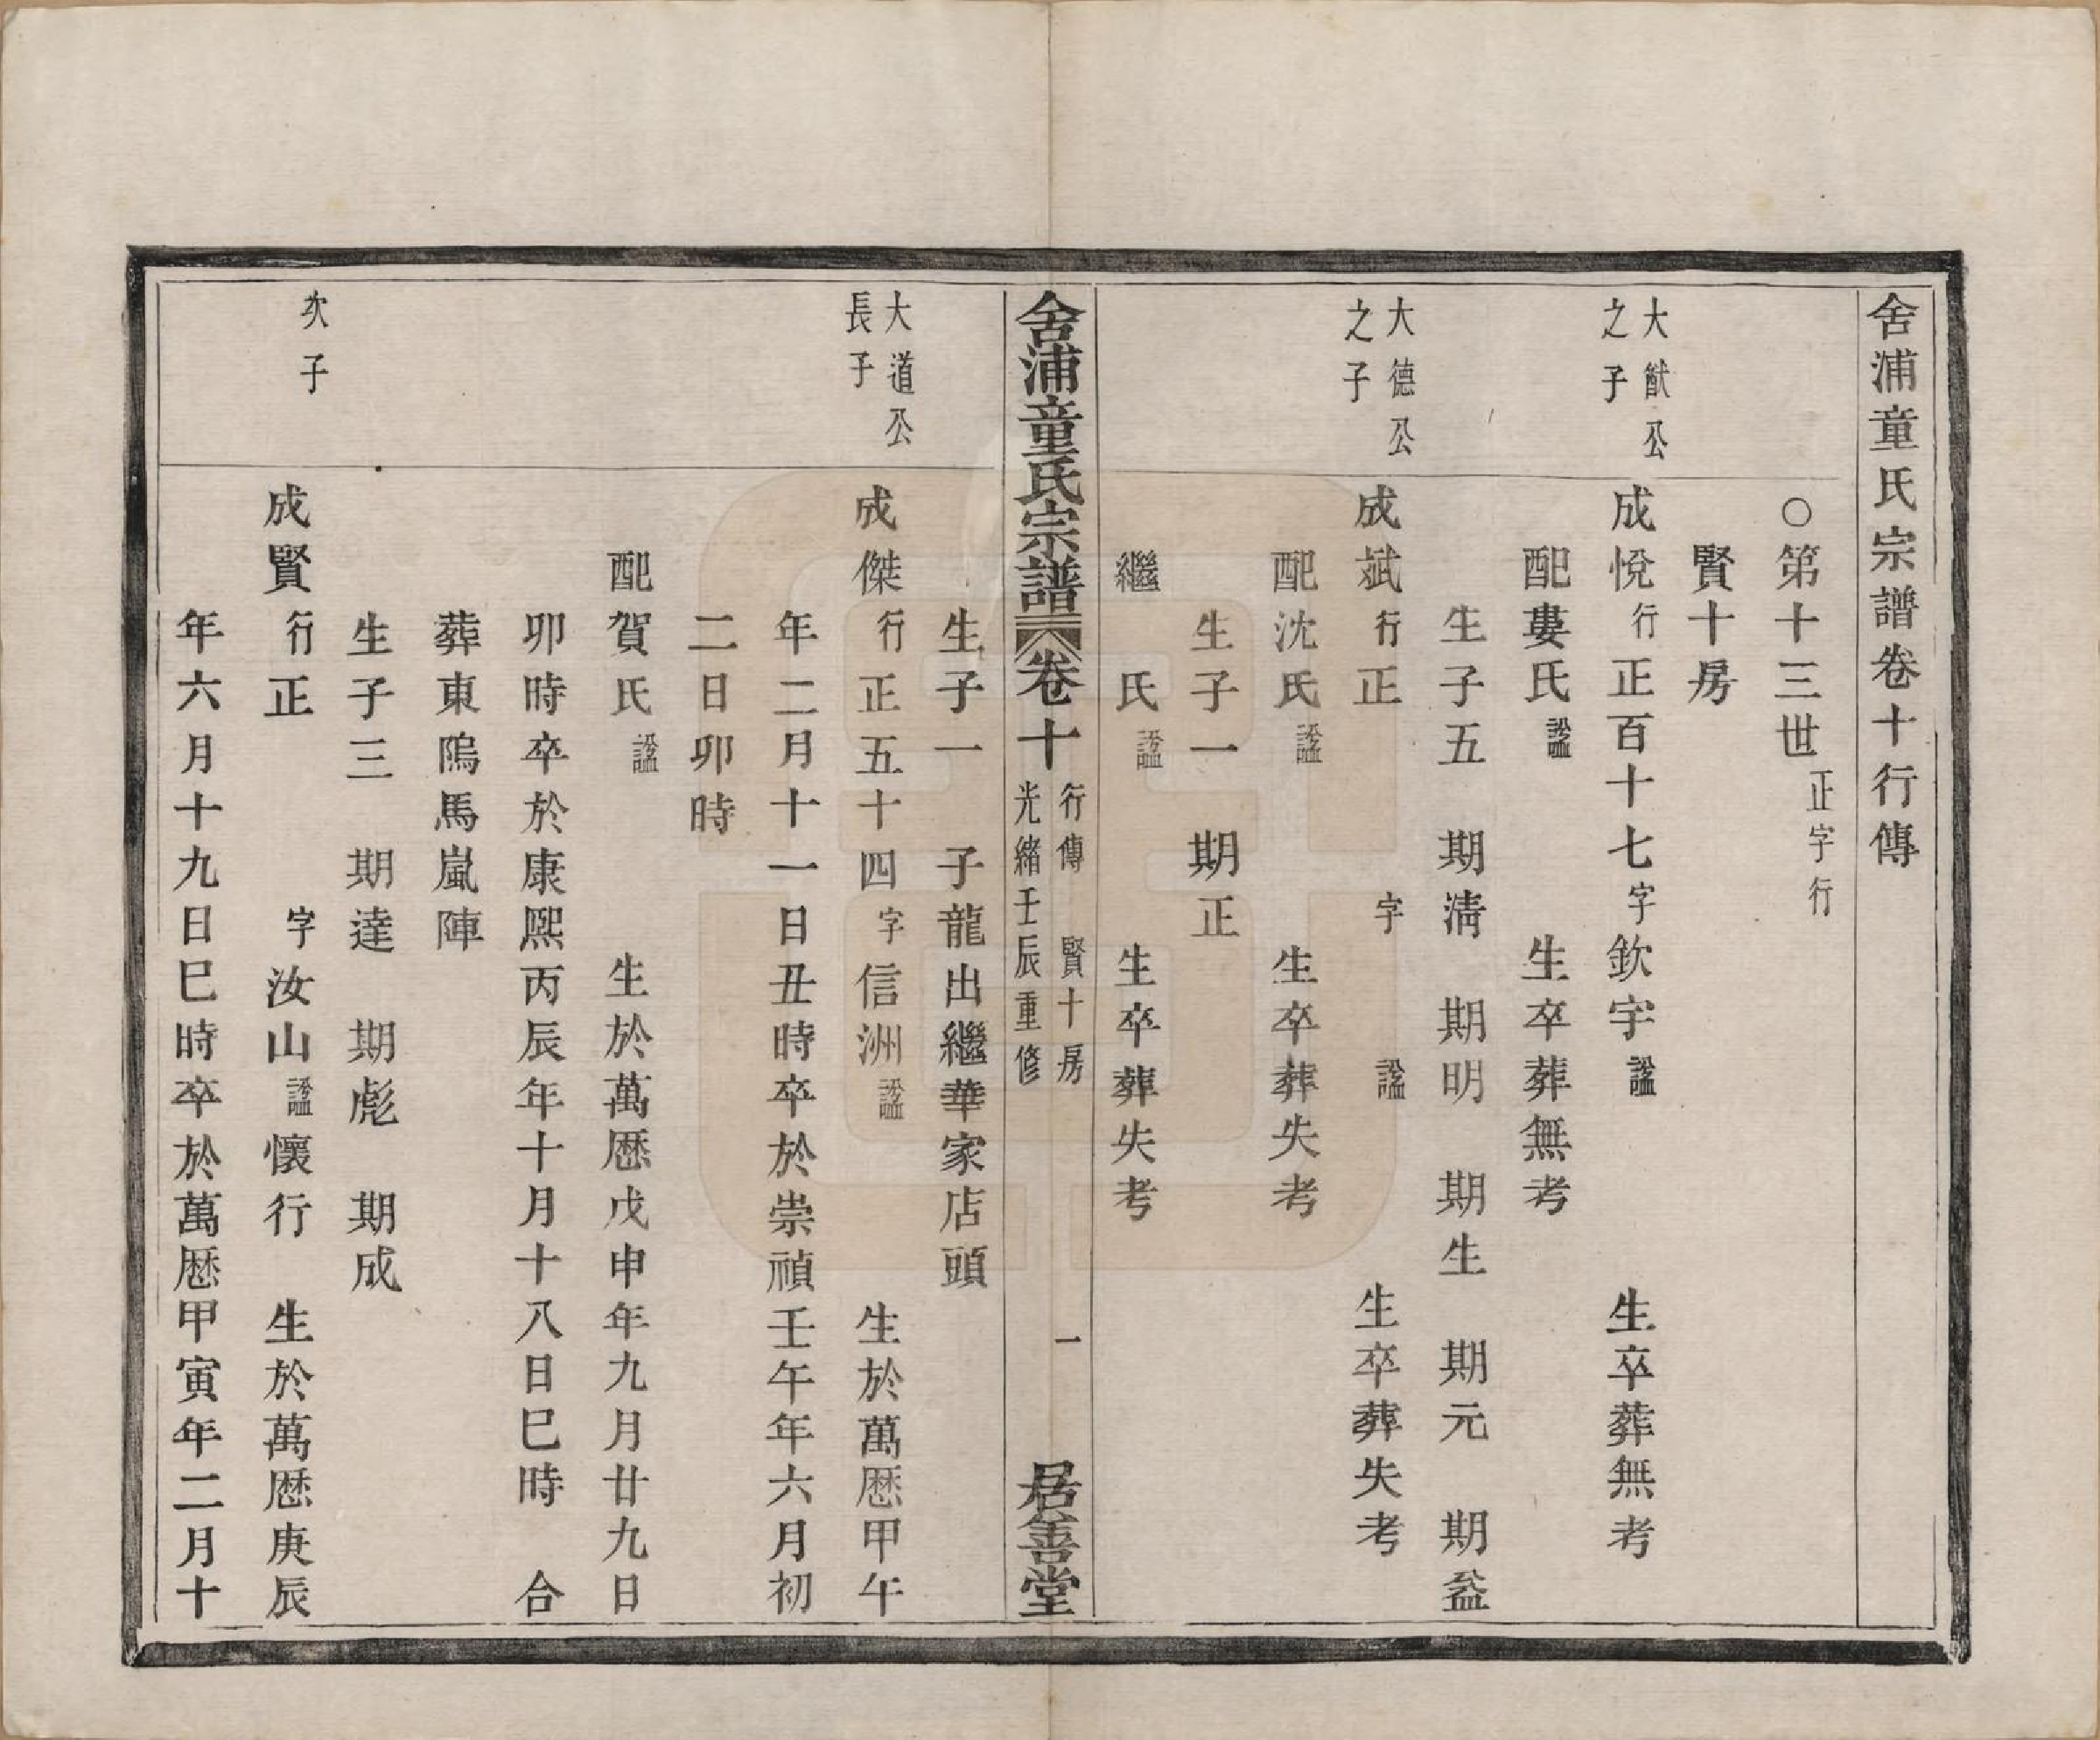 舍浦童氏宗譜卷十行傳
○第十三世正字行
賢十房
大猷公
之子
成悅行正百十七字欽宇諡 生卒葬無考
配婁氏諡 生卒葬無考
生子五 期淸 期明 期生 期元 期益
大德公
之子
成斌行正 字 諡 生卒葬失考
配沈氏諡 生卒葬失考
生子一 期正
繼 氏諡 生卒葬失考
舍浦童氏宗譜 卷十 行傳 賢十房 一 居善堂
光緒壬辰重修
生子一 子龍出繼華家店頭
大道公
長子
成傑行正五十四字信洲諡 生於萬歷甲午
年二月十一日丑時卒於崇禎壬午年六月初
二日卯時
配賀氏諡 生於萬歷戊申年九月廿九日
卯時卒於康熙丙辰年十月十八日巳時 合
葬東隖馬嵐陣
生子三 期達 期彪 期成
次子
成賢行正 字汝山諡懷行 生於萬歷庚辰
年六月十九日巳時卒於萬歷甲寅年二月十